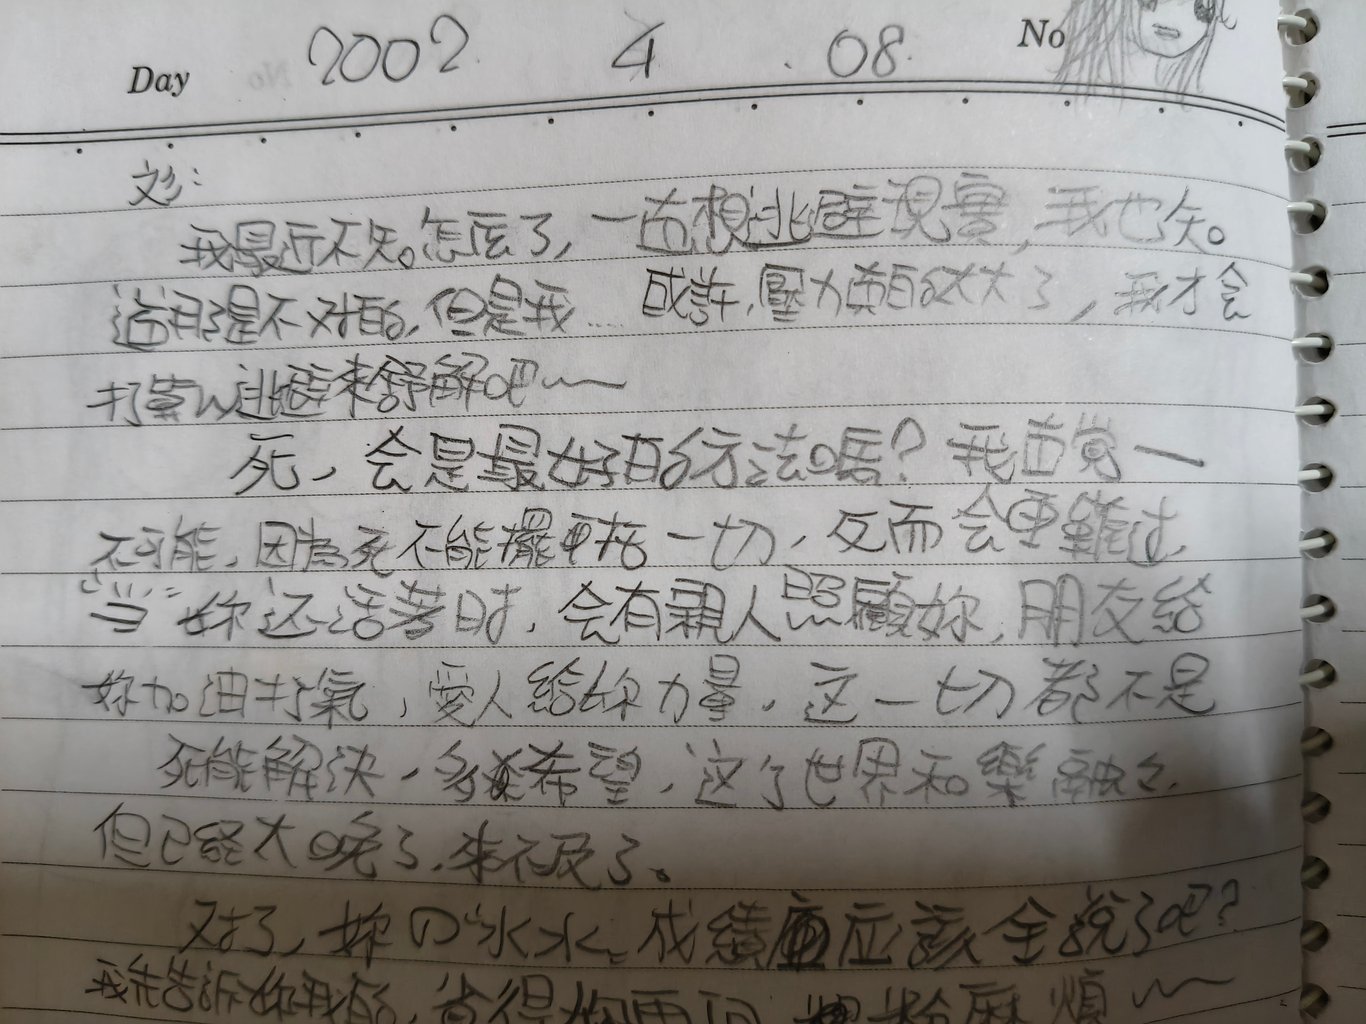 Day 2002. 4 . 08. No
文彡：
我最近不知怎么了，一直想逃避現實，我也知
道那是不对的，但是我..... 或許，壓力真的太大了，我才会
打算以逃避来舒解吧~~
死，会是最好的方法嗎？我直覚一
不可能，因為死不能擺平一切，反而会更難过，
"当"妳还活著时，会有親人照顧妳，朋友給
妳加油打氣，愛人給妳力量，这一切都不是
死能解決，多希望，这个世界和樂融々，
但已経太晚了，来不及了。
对了，妳の"水水"成績應該全說了吧？
我先告訴妳我的，省得妳再问 麻煩~~